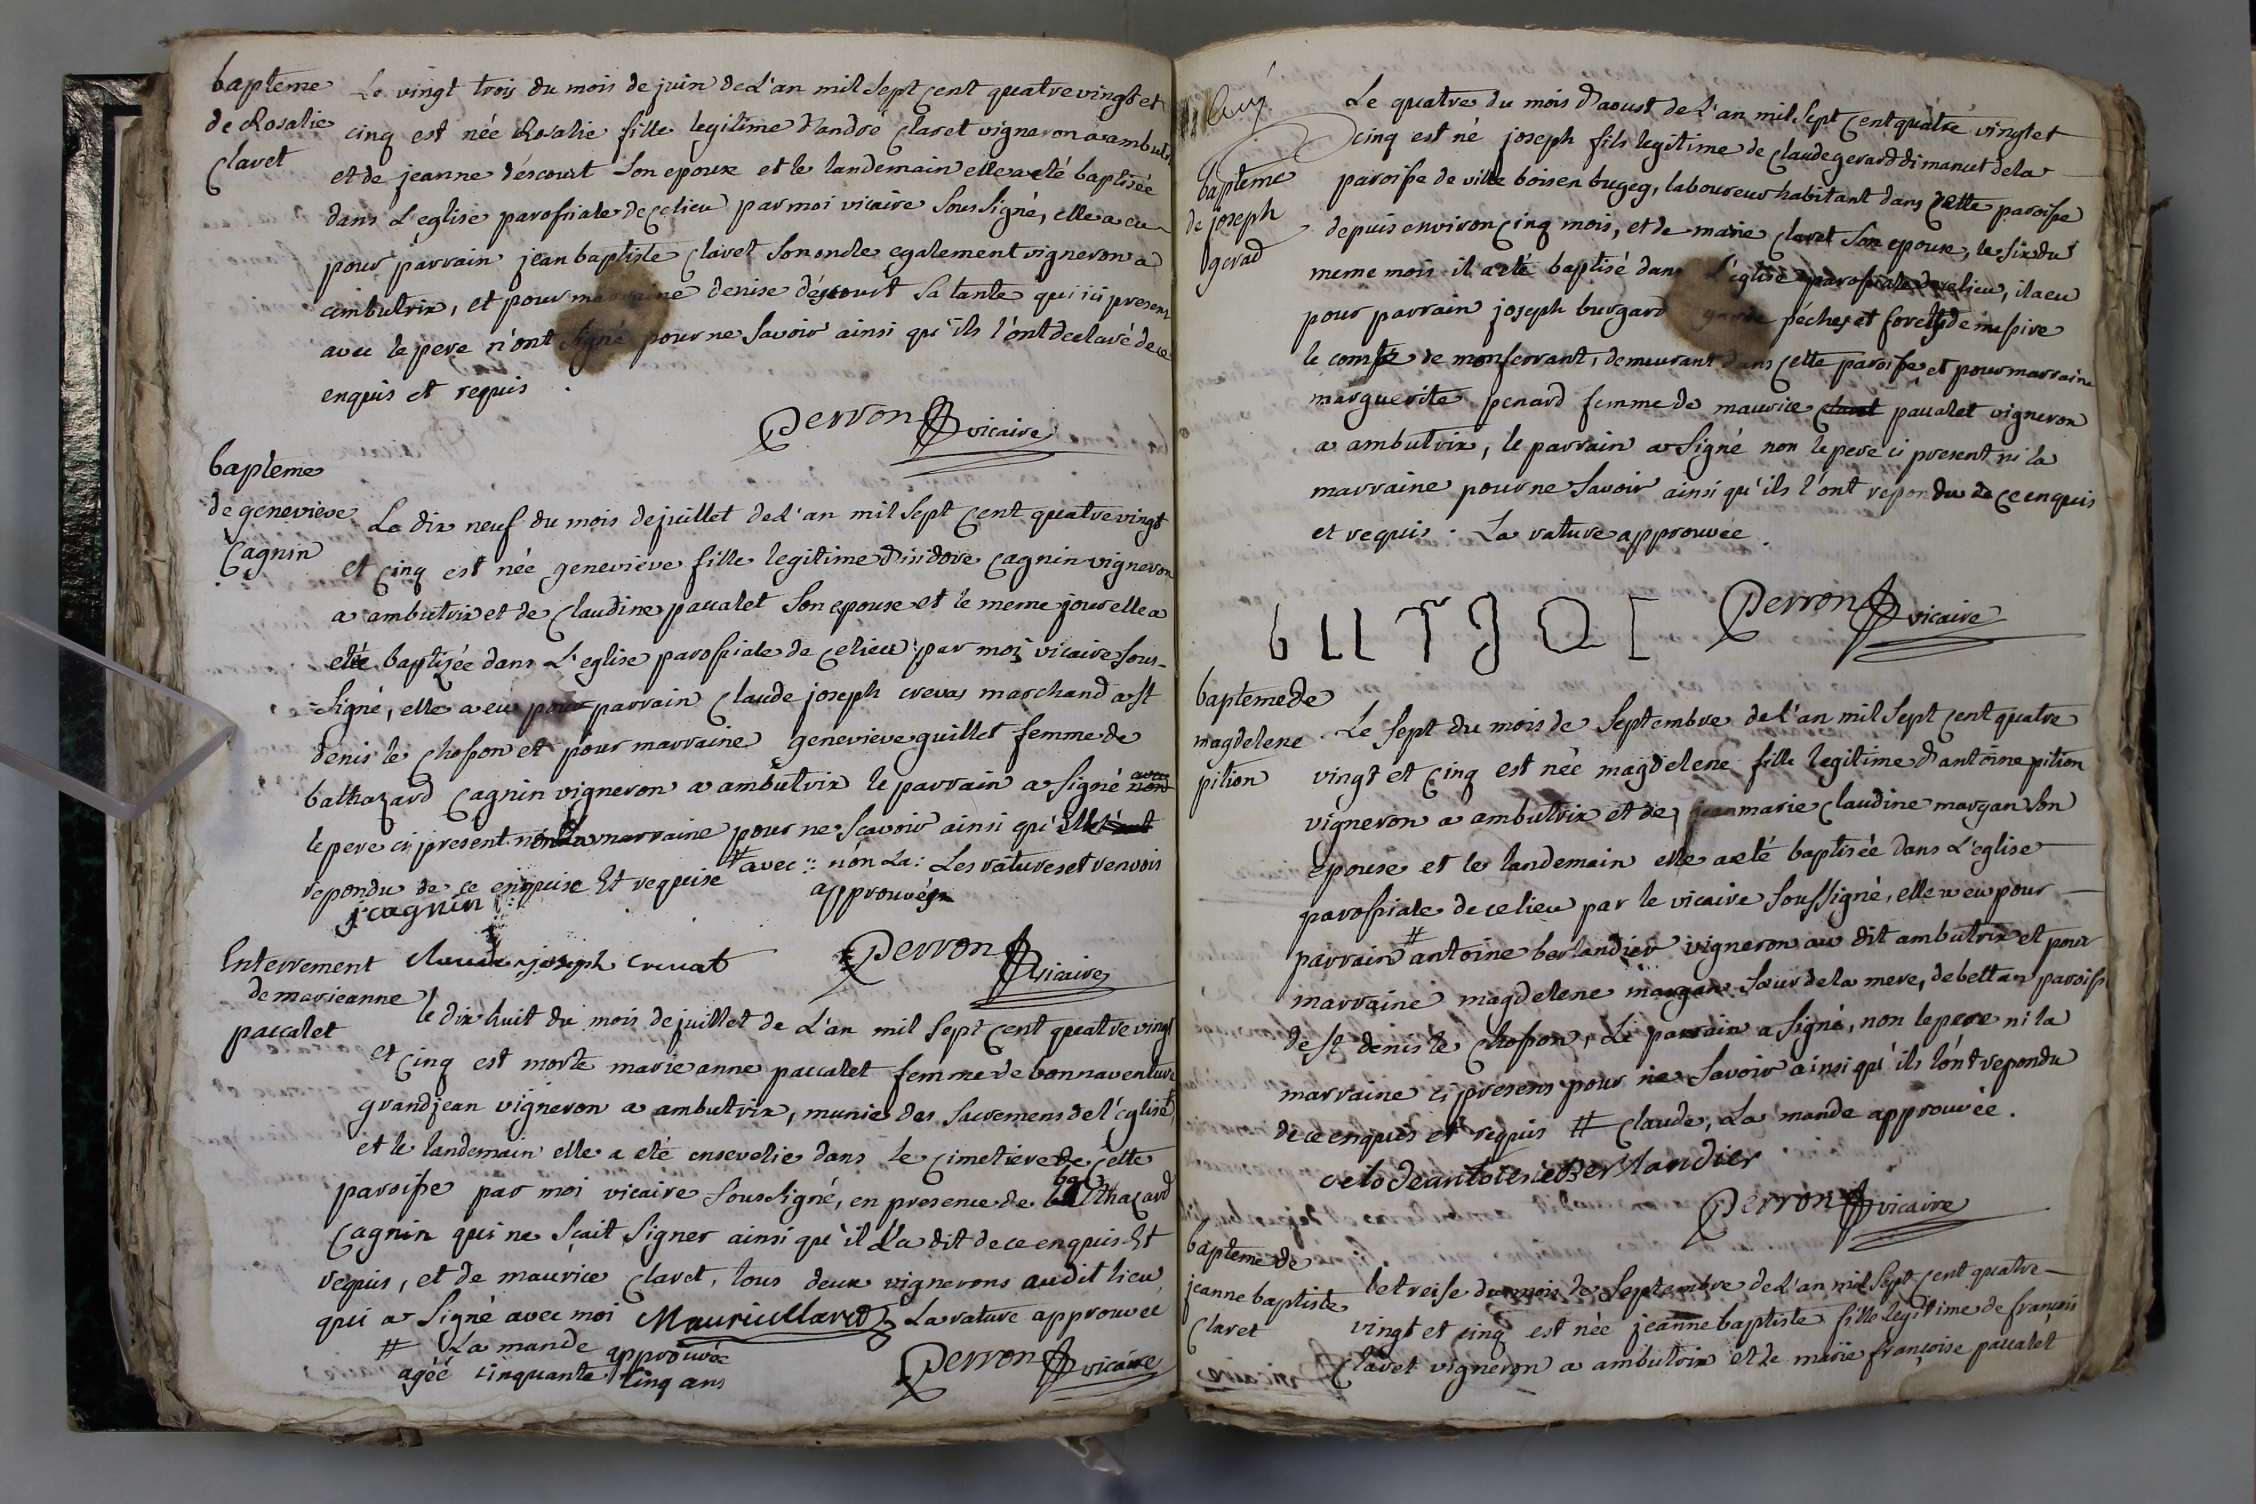 bapteme
de Rosalie
Claret
Le vingt trois du mois de juin de L'an mil Sept Cent quatre vingt et
cinq est née Rosalie fille legitime d'andré Claret vigneron a ambutrix
et de jeanne déscourt Son epouse et le landemain elle a eté baptisée
dans L'eglise paroissiale de ce lieu par moi vicaire Sous Signé, elle a eu
pour parrain jean baptiste Claret Son oncle egalement vigneron a
ambutrix, et pour marraine denise déscourt Sa tante qui ici presens
avec le pere n'ont Signé pour ne Savoir ainsi qu'ils l'ont declaré de ce
enquis et requis
Perron vicaire
bapteme
de genevieve
Cagnin
Le dix neuf du mois de juillet de L'an mil Sept Cent quatre vingt
et Cinq est née genevieve fille legitime d'isidore Cagnin vigneron
a ambutrix et de Claudine paccalet Son epouse et le meme jour elle a
eté baptizée dans L'eglise paroissiale de Ce lieu par moi vicaire Sous-
Signé, elle a eu pour parrain Claude joseph crevas marchand a St
denis le Chosson et pour marraine genevieve guillet femme de
balthazard Cagnin vigneron a ambutrix le parrain a Signé avec
non
le pere ci present non la marraine pour ne Scavoir ainsi qu'
repondu de ce enquise Et requise # avec :: non La : Les ratures et renvois
approuvés
j cagnin
Claude joseph crevat
Perron vicaire
Enterrement
de marieanne
paccalet
le dix huit du mois de juillet de L'an mil Sept Cent quatre vingt
et Cinq est morte marie anne paccalet femme de bonnaventure
grandjean vigneron a ambutrix, munie des Sacremens de l'Eglise #
et le landemain elle a eté ensevelie dans le Cimetiere de Cette
paroisse par moi vicaire Sous Signé, en presence de balthazard
Cagnin qui ne Sçait Signer ainsi qu'il L'a dit de ce enquis Et
requis, et de maurice Claret, tous deux vignerons audit lieu
qui a Signé avec moi Maurice Claret La rature approuvée
# La mande approuvée
agée cinquante cinq ans
Perron vicaire
bapteme
de joseph
gerad
Le quatre du mois d'aoust de L'an mil Sept Cent quatre vingt et
cinq est né joseph fils legitime de Claude gerard di manut de la
paroisse de ville bois en bugeg, laboureur habitant dans Cette paroisse
depuis environ Cinq mois, et de marie Claret Son epouse, le Six du
meme mois il a eté baptisé dans L'eglise paroissiale de ce lieu, il a eu
pour parrain joseph burgard garde péches et forets de messire
le comte de monferrant, demeurant dans Cette paroisse et pour marraine
marguerite penard femme de maurice Claret paccalet vigneron
a ambutrix, le parrain a Signé non le pere ci present ni la
marraine pour ne Savoir ainsi qu'ils l'ont repondu de ce enquis
et requis : La rature approuvée.
Perron vicaire
bapteme de
magdelene
pition
Le Sept du mois de Septembre de L'an mil Sept Cent quatre
vingt et Cinq est née magdelene fille legitime d'antoine pition
vigneron a ambutrix et de jeanmarie Claudine margan Son
epouse et le landemain elle a eté baptisée dans L'eglise
paroissiale de ce lieu par le vicaire Soussigné, elle a eu pour
parrain # antoine berlandier vigneron au dit ambutrix et pour
marraine magdelene margan Sœur de la mere, de bettan paroisse
de St denis le Chosson, Le parrain a Signé, non le pere ni la
marraine ci presens pour ne Savoir ainsi qu'ils l'ont repondu
de ce enquis et requis # Claude, La mande approuvée.
Perron vicaire
bapteme de
jeanne baptiste
Claret
Le treise du mois de Septembre de L'an mil Sept Cent quatre
vingt et cinq est née jeanne baptiste fille legitime de françois
Claret vigneron a ambutrix et de marie françoise paccalet